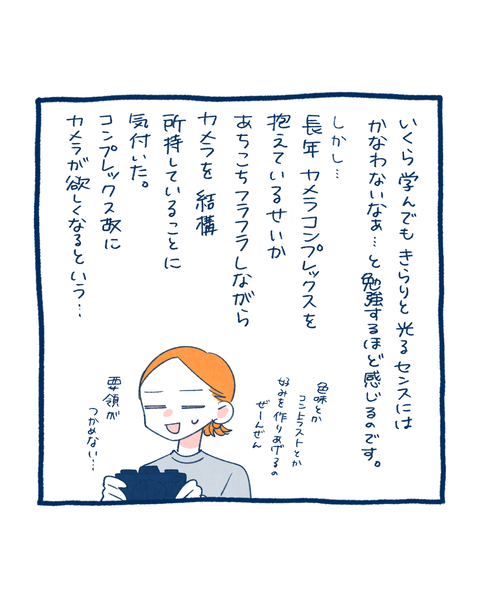 いくら学んでもきらりと光るセンスには
かなわないなぁ…と勉強するほど感じるのです。
しかし…
長年カメラコンプレックスを
抱えているせいか
あちこちフラフラしながら
カメラを結構
所持していることに
気付いた。
コンプレックス故に
カメラが欲しくなるという…
色味とか
コントラストとか
好みを作りあげるの
ぜーんぜん
要領が
つかめない…